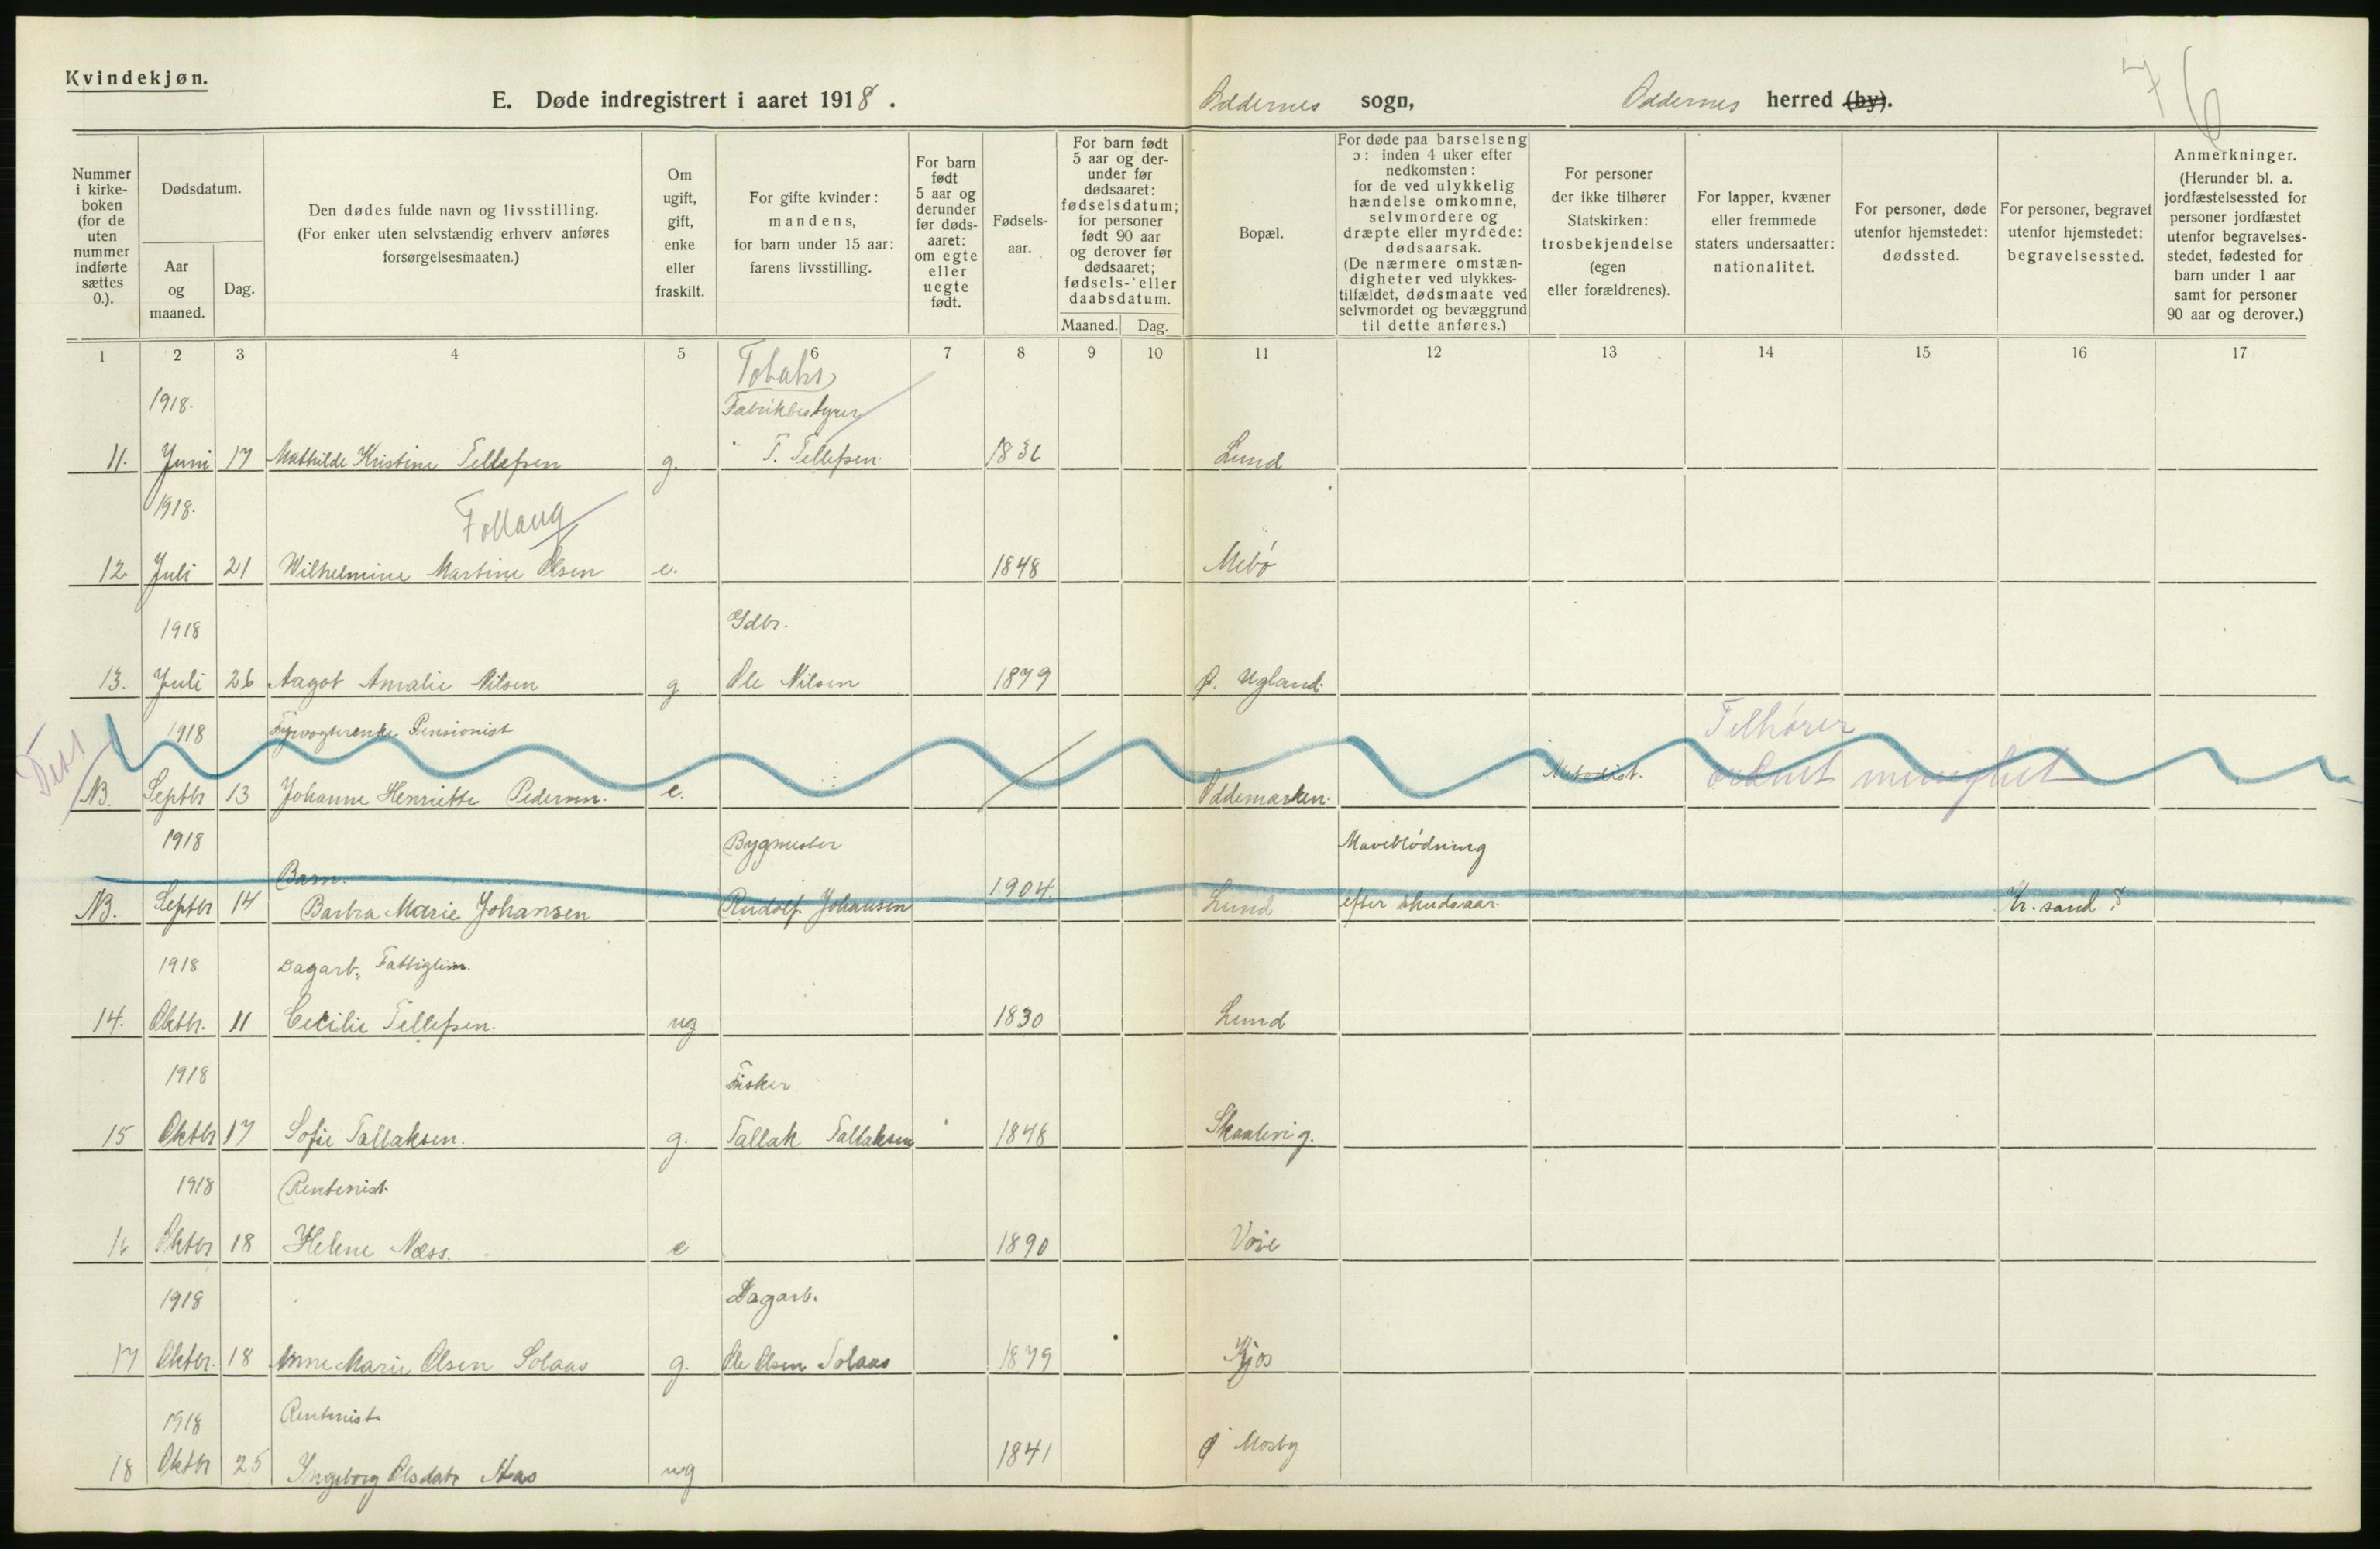 Kvindekjøn.
E. Døde indregistrert i aaret 1918.
Oddernes sogn, Oddernes herred (by).
Nummer i kirkeboken (for de uten nummer indførte sættes 0.).
Dødsdatum.
Aar og maaned.
Dag.
Den dødes fulde navn og livsstilling. (For enker uten selvstændig erhverv anføres forsørgelsesmaaten.)
Om ugift, gift, enke eller fraskilt.
For gifte kvinder: mandens, for barn under 15 aar: farens livsstilling.
For barn født 5 aar og derunder før dødsaaret: om egte eller uegte født.
Fødselsaar.
For barn født 5 aar og derunder før dødsaaret: fødselsdatum; for personer født 90 aar og derover før dødsaaret; fødsels- eller daabsdatum.
Maaned. Dag.
Bopæl.
For døde paa barselseng ɔ: inden 4 uker efter nedkomsten: for de ved ulykkelig hændelse omkomne, selvmordere og dræpte eller myrdede: dødsaarsak. (De nærmere omstændigheter ved ulykkestilfældet, dødsmaate ved selvmordet og bevæggrund til dette anføres.)
For personer der ikke tilhører Statskirken: trosbekjendelse (egen eller forældrenes).
For lapper, kvæner eller fremmede staters undersaatter: nationalitet.
For personer, døde utenfor hjemstedet: dødssted.
For personer, begravet utenfor hjemstedet: begravelsessted.
Anmerkninger. (Herunder bl. a. jordfæstelsessted for personer jordfæstet utenfor begravelsesstedet, fødested for barn under 1 aar samt for personer 90 aar og derover.)
1 2 3 4 5 6 7 8 9 10 11 12 13 14 15 16 17
1918. Tobaks Fabrikbestyrer
11. Juni 17 Mathilde Kristine Tellefsen g. T. Tellefsen 1836 Lund
1918. Follaug
12 Juli 21 Wilhelmine Martine Olsen e. 1848 Mebø
1918 Gdbr.
13. Juli 26 Aagot Amalie Nilsen g Ole Nilsen 1879 Ø. Ugland.
1918 Fyrvogterenke Pensionist Tilhører
NB. Septbr 13 Johanne Henriette Pedersen. e. Oddemarken. Metodist. ordnet menighet
1918 Barn. Bygmester Maveblødning
NB. Septbr 14 Barbra Marie Johansen Rudolf Johansen 1904. Lund efter skudsaar. Kr.sand S
1918 Dagarb. Fattiglem.
14. Oktbr. 11 Cecilie Tellefsen. ug 1830 Lund
1918 Fisker
15 Oktbr 17 Sofie Tallaksen. g. Tallak Tallaksen 1848 Skaalevig.
1918 Rentenist.
16 Oktbr 18 Helene Næss. e 1890 Voie
1918 Dagarb.
17 Oktbr. 18 Anne Marie Olsen Solaas g. Ole Olsen Solaas 1879 Kjos
1918 Rentenist.
18 Oktbr 25 Ingeborg Olsdatr Aas ug 1841 Ø Mosby